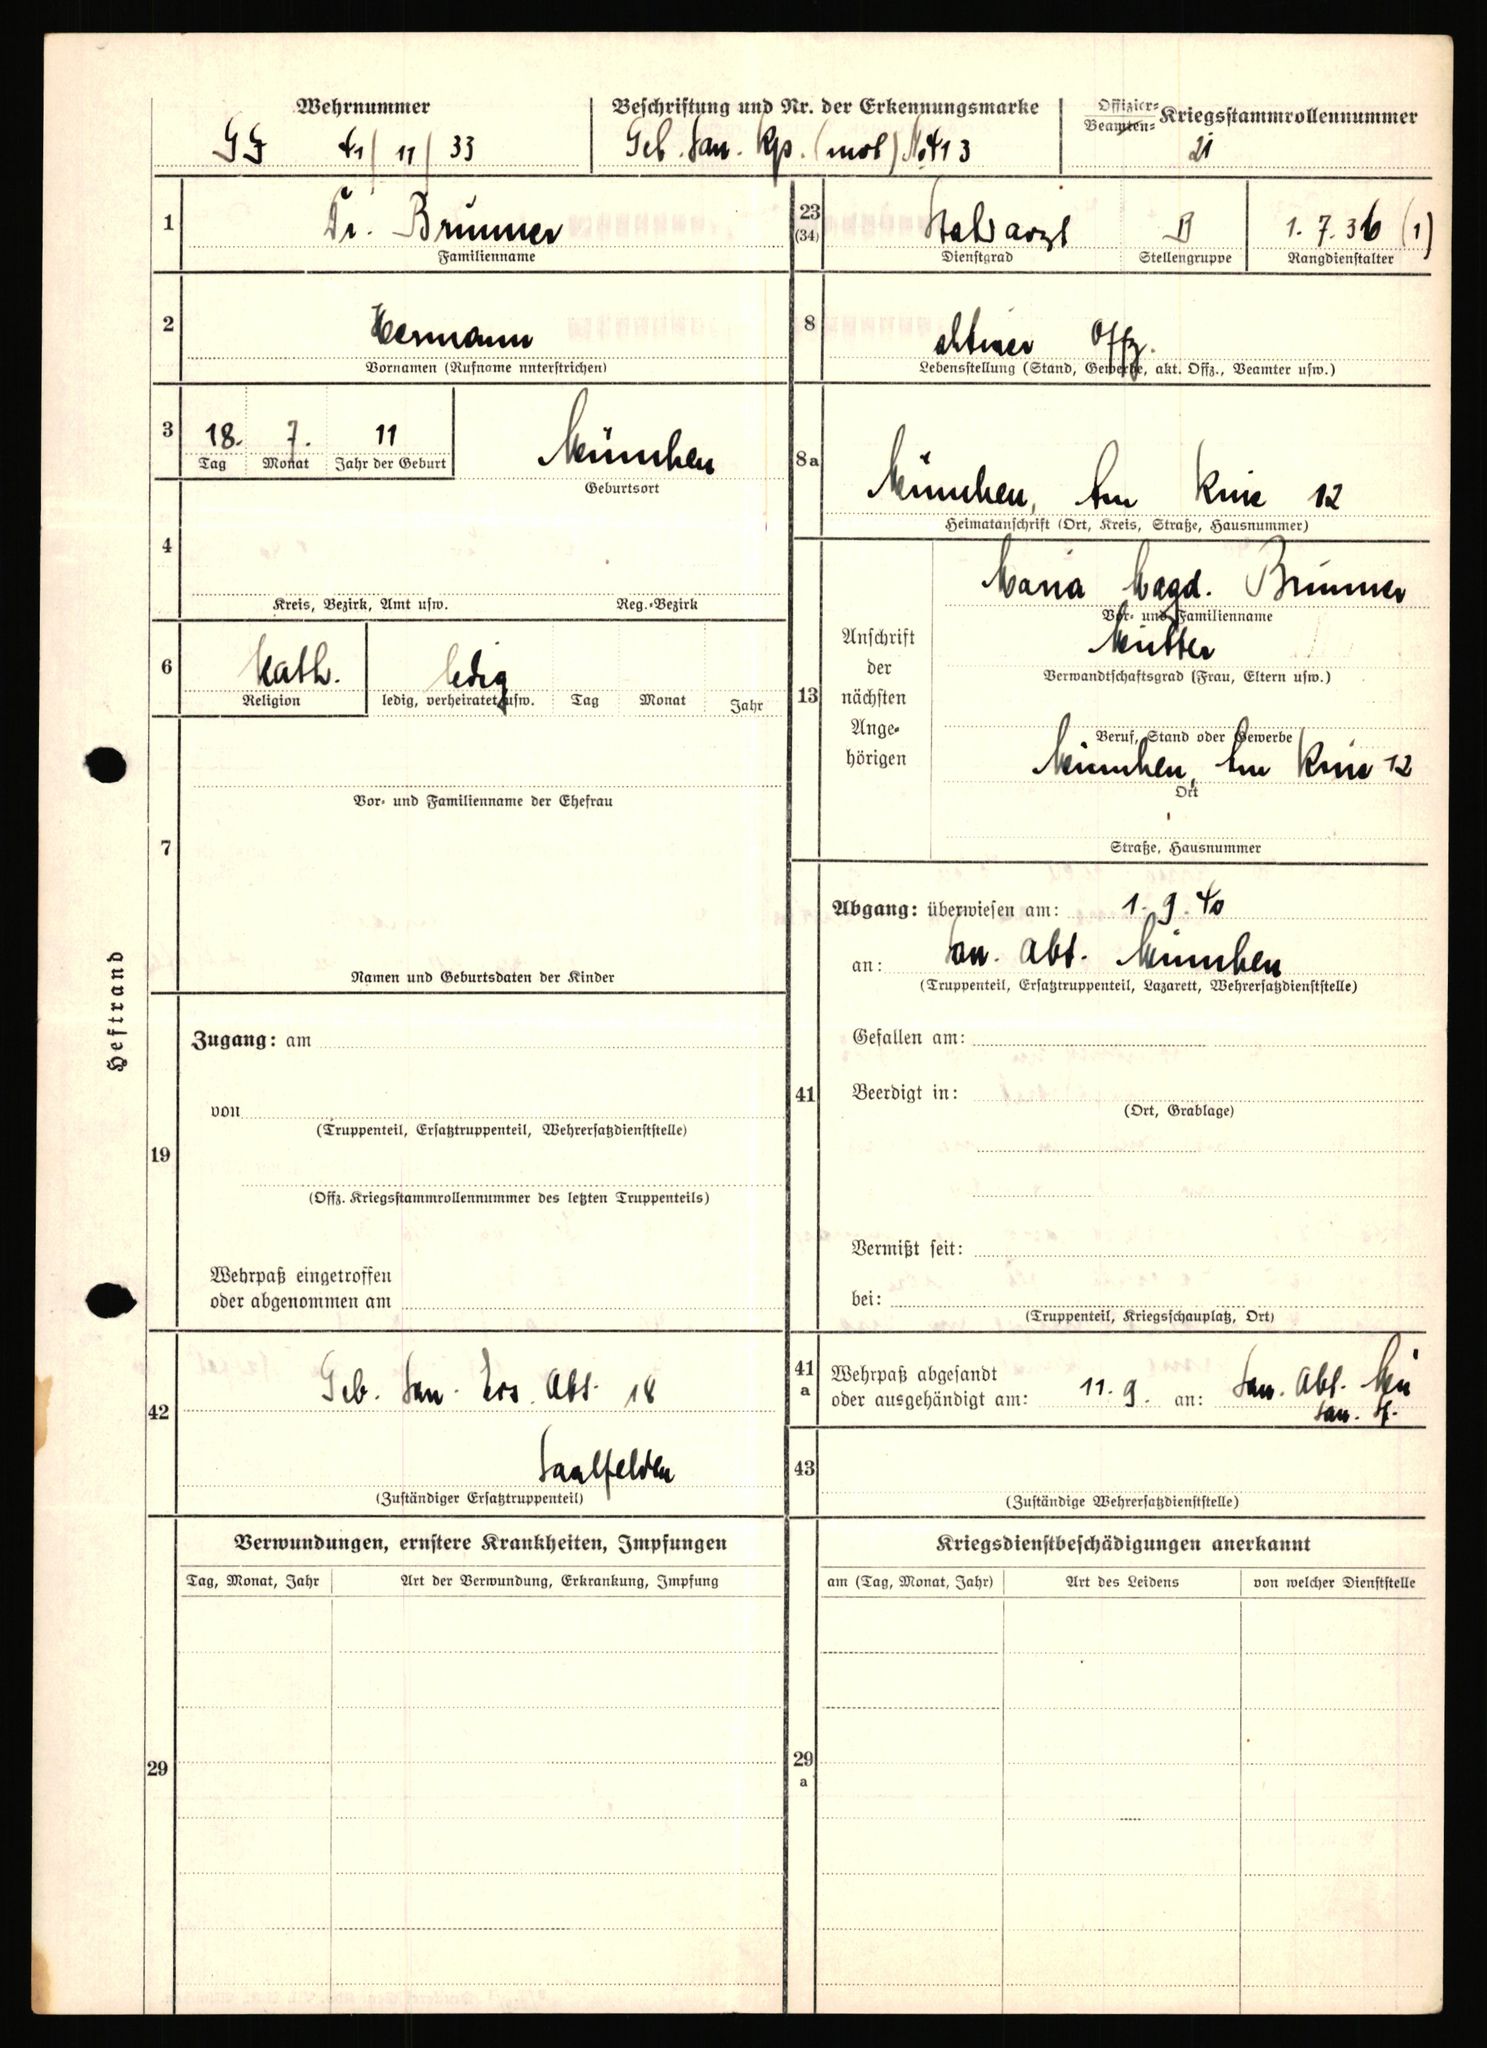 Wehrnummer
11 / 33
Beschriftung und Nr. der Erkennungsmarke
Geb. San. Kp. (mot) No 413
Offizier-
Beamten-
Kriegsstammrollennummer
21
1
Dr. Brunner
Familienname
2
Hermann
Vornamen (Rufname unterstrichen)
3
18. 7. 11
Tag Monat Jahr der Geburt
München
Geburtsort
4
Kreis, Bezirk, Amt usw. Reg.-Bezirk
6
kath.
Religion
ledig
ledig, verheiratet usw. Tag Monat Jahr
7
Vor- und Familienname der Ehefrau
Namen und Geburtsdaten der Kinder
Heftrand
19
Zugang: am
von
(Truppenteil, Ersatztruppenteil, Wehrersatzdienststelle)
(Offz. Kriegsstammrollennummer des letzten Truppenteils)
Wehrpaß eingetroffen
oder abgenommen am
42
Geb. San. Ers. Abt. 18
Saalfelden
(Zuständiger Ersatztruppenteil)
23
(34)
Stabsarzt B 1. 7. 36 (1)
Dienstgrad Stellengruppe Rangdienstalter
8
aktiver Offz.
Lebensstellung (Stand, Gewerbe, akt. Offz., Beamter usw.)
8a
München, Am Knie 12
Heimatanschrift (Ort, Kreis, Straße, Hausnummer)
13
Anschrift
der
nächsten
Ange-
hörigen
Maria Magd. Brunner
Vor- und Familienname
Mutter
Verwandtschaftsgrad (Frau, Eltern usw.)
Beruf, Stand oder Gewerbe
München, Am Knie 12
Ort
Straße, Hausnummer
41
Abgang: überwiesen am: 1. 9. 40
an: San. Abt. München
(Truppenteil, Ersatztruppenteil, Lazarett, Wehrersatzdienststelle)
Gefallen am:
Beerdigt in:
(Ort, Grablage)
Vermißt seit:
bei:
(Truppenteil, Kriegsschauplatz, Ort)
41
a
Wehrpaß abgesandt
oder ausgehändigt am: 11. 9. an: San. Abt. Mü
San.
43
(Zuständige Wehrersatzdienststelle)
29
Verwundungen, ernstere Krankheiten, Impfungen
Tag, Monat, Jahr Art der Verwundung, Erkrankung, Impfung
29
a
Kriegsdienstbeschädigungen anerkannt
am (Tag, Monat, Jahr) Art des Leidens von welcher Dienststelle